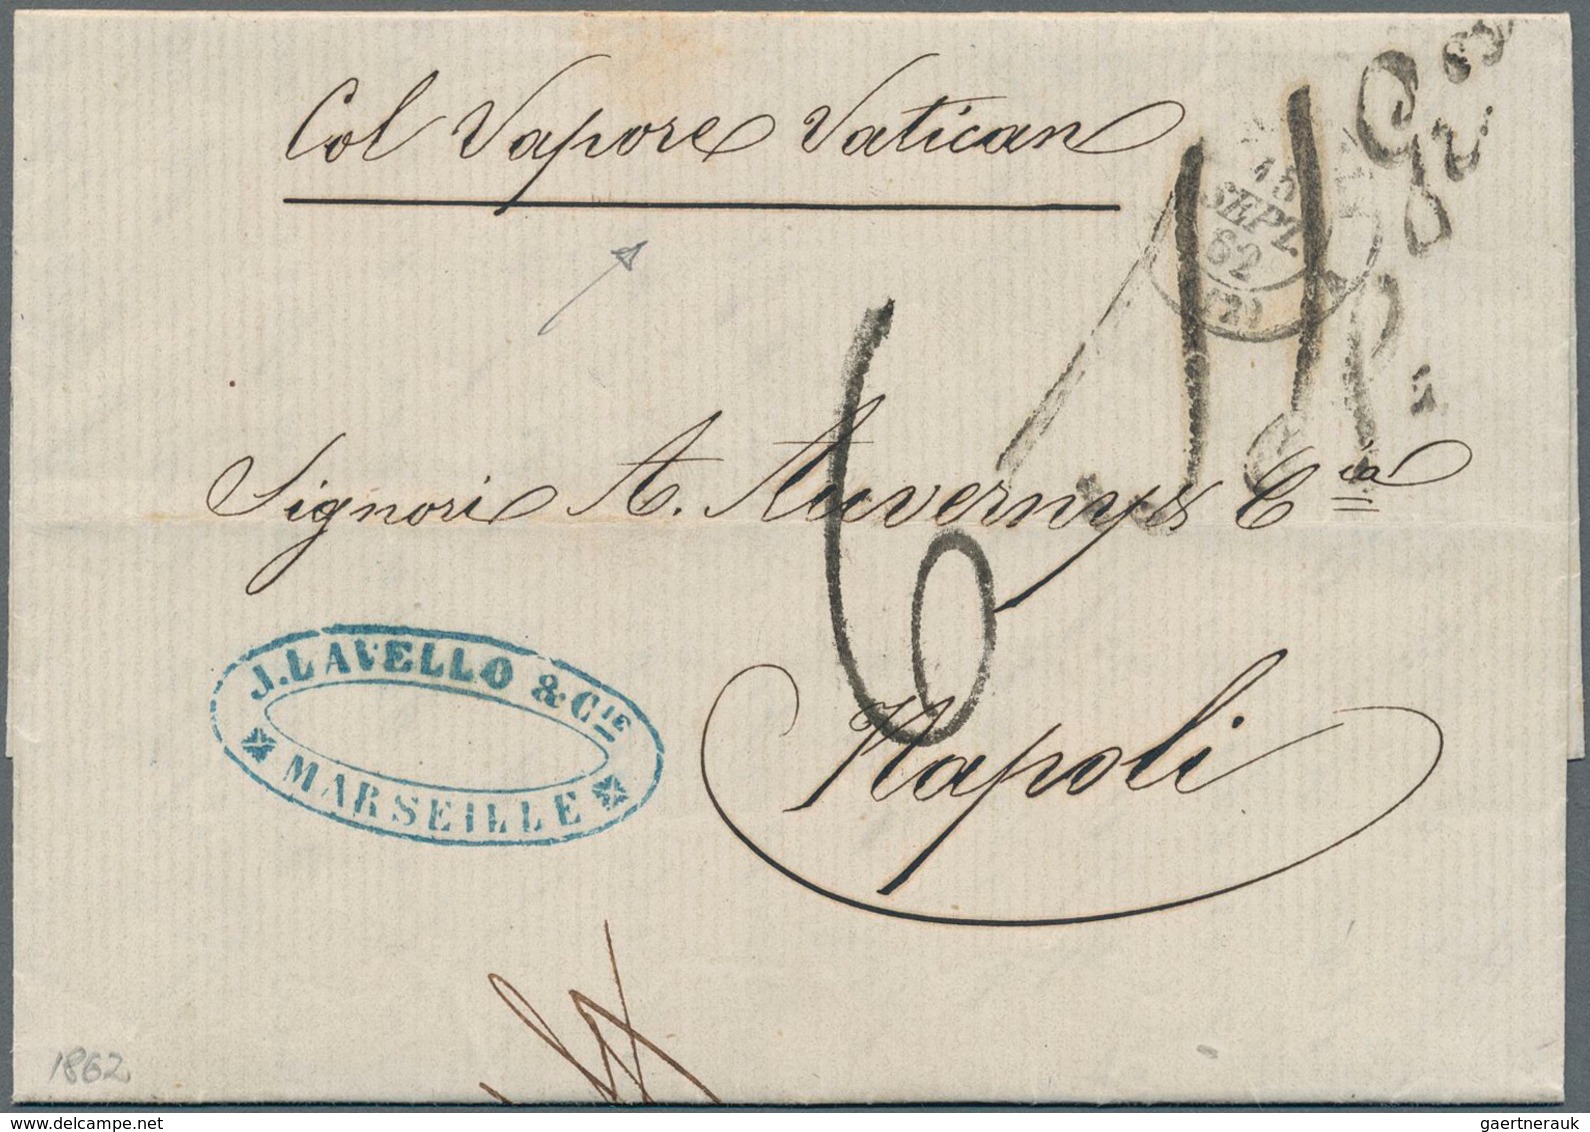 Col Vapore Vatican
15
SEPT.
62
(2)
Gr.
6
Signori A. Auverny & C.ia
Napoli
J. LAVELLO & CIE
MARSEILLE
1862
gaertnerauk
© www.delcampe.net